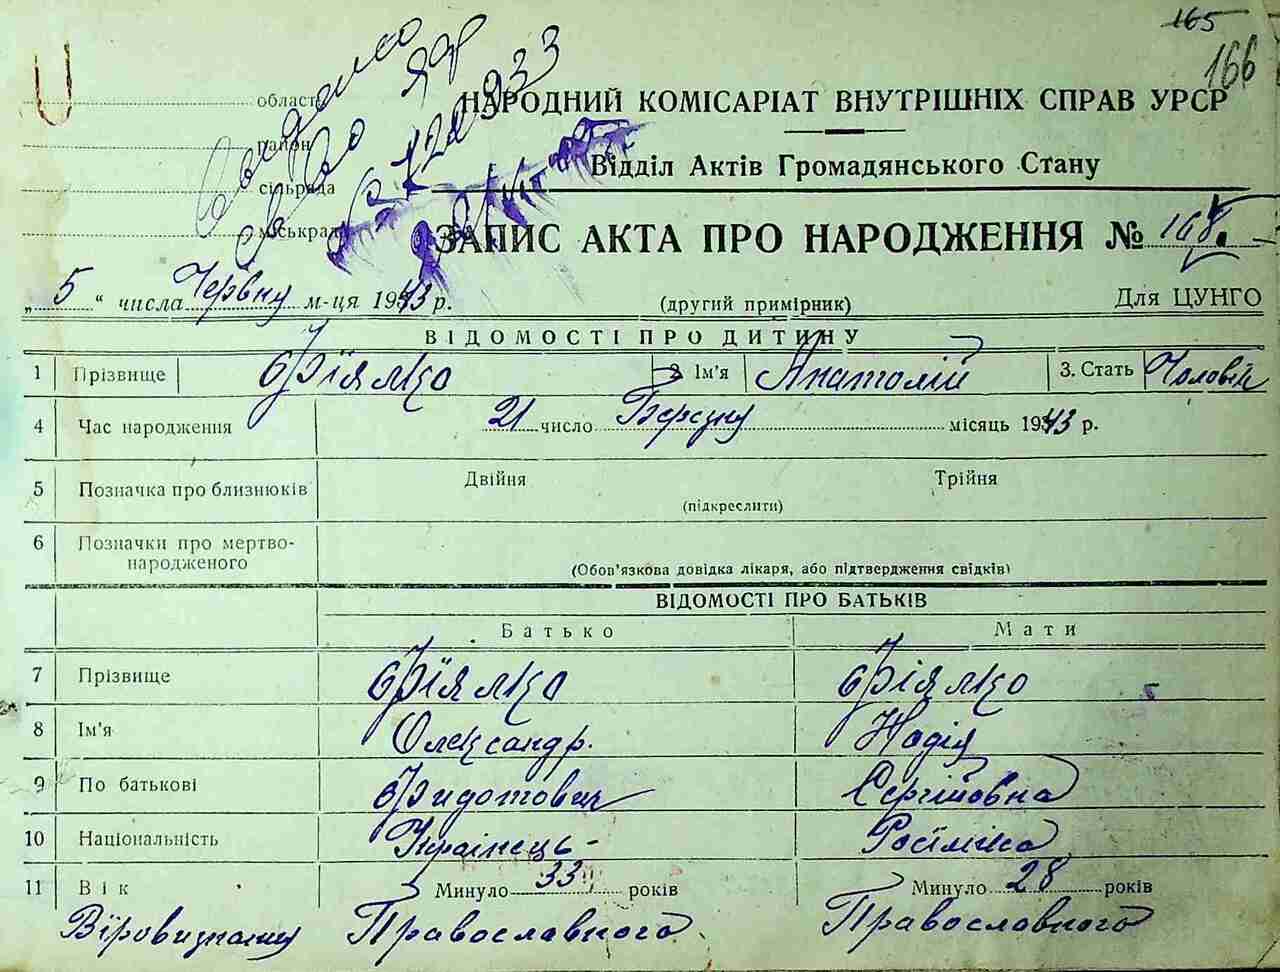 165
166
область
район
сільрада
міськрада
НАРОДНИЙ КОМІСАРІАТ ВНУТРІШНІХ СПРАВ УРСР
Відділ Актів Громадянського Стану
ЗАПИС АКТА ПРО НАРОДЖЕННЯ № 168.
„5“ числа Червня м-ця 1943 р. (другий примірник) Для ЦУНГО
ВІДОМОСТІ ПРО ДИТИНУ
1 Прізвище Фіялко 2 Ім'я Анатолій 3. Стать Чоловік
4 Час народження 21 число Березня місяць 1943 р.
5 Позначка про близнюків Двійня Трійня
(підкреслити)
6 Позначки про мертво-
народженого
(Обов'язкова довідка лікаря, або підтвердження свідків)
ВІДОМОСТІ ПРО БАТЬКІВ
Батько Мати
7 Прізвище Фіялко Фіялко
8 Ім'я Олександр. Надія
9 По батькові Федотович Сергіївна
10 Національність Українець - Росіянка
11 Вік Минуло 33 років Минуло 28 років
Віровизнання Православного Православного